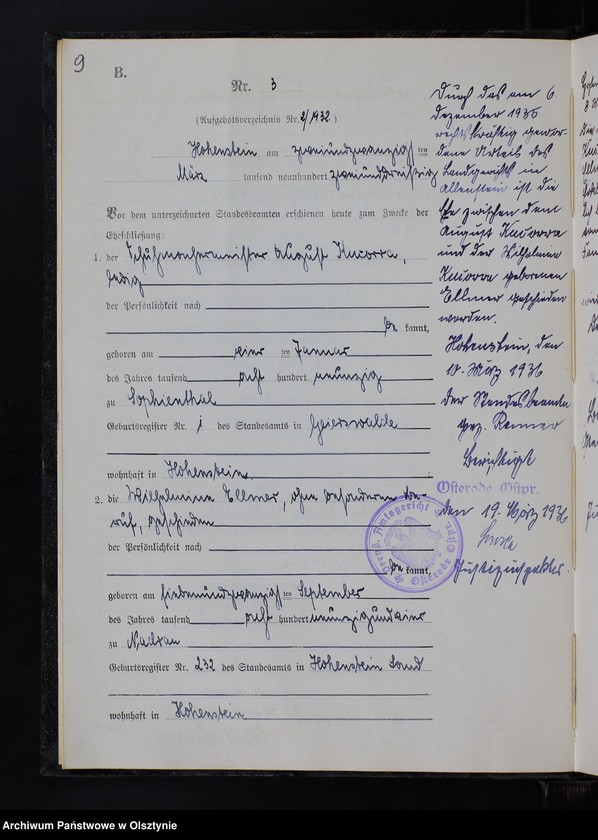 9
B.
Nr. 3
(Aufgebotsverzeichnis Nr. 2/1932)
Hohenstein am zweiundzwanzigsten
März tausend neunhundert zweiunddreißig
Vor dem unterzeichneten Standesbeamten erschienen heute zum Zwecke der
Eheschließung:
1. der Schuhmachermeister August Kucorra,
ledig
der Persönlichkeit nach
be kannt,
geboren am ten Januar
des Jahres tausend acht hundert neunzig
zu Sophienthal
Geburtsregister Nr. 1 des Standesamts in Geierswalde
wohnhaft in Hohenstein.
2. die Wilhelmine Ellmer, ohne besonderen Be-
ruf, geschieden
der Persönlichkeit nach
be kannt,
geboren am siebenundzwanzigsten September
des Jahres tausend acht hundert
zu Nadrau
Geburtsregister Nr. 232 des Standesamts in Hohenstein Land
wohnhaft in Hohenstein
Durch das am 6
Dezember 1935
rechtskräftig gewor-
dene Urteil des
Landgerichts in
Allenstein ist die
Ehe zwischen dem
August Kucorra
und der Wilhelmine
Kucorra geborenen
Ellmer geschieden
worden.
Hohenstein, den
10. März 1936
Der Standesbeamte
gez.
Berichtigt
Osterode Ostpr.
den 19. März 1936
Justizinspektor.
Preuß. Amtsgericht Osterode Ostpr.
Archiwum Państwowe w Olsztynie